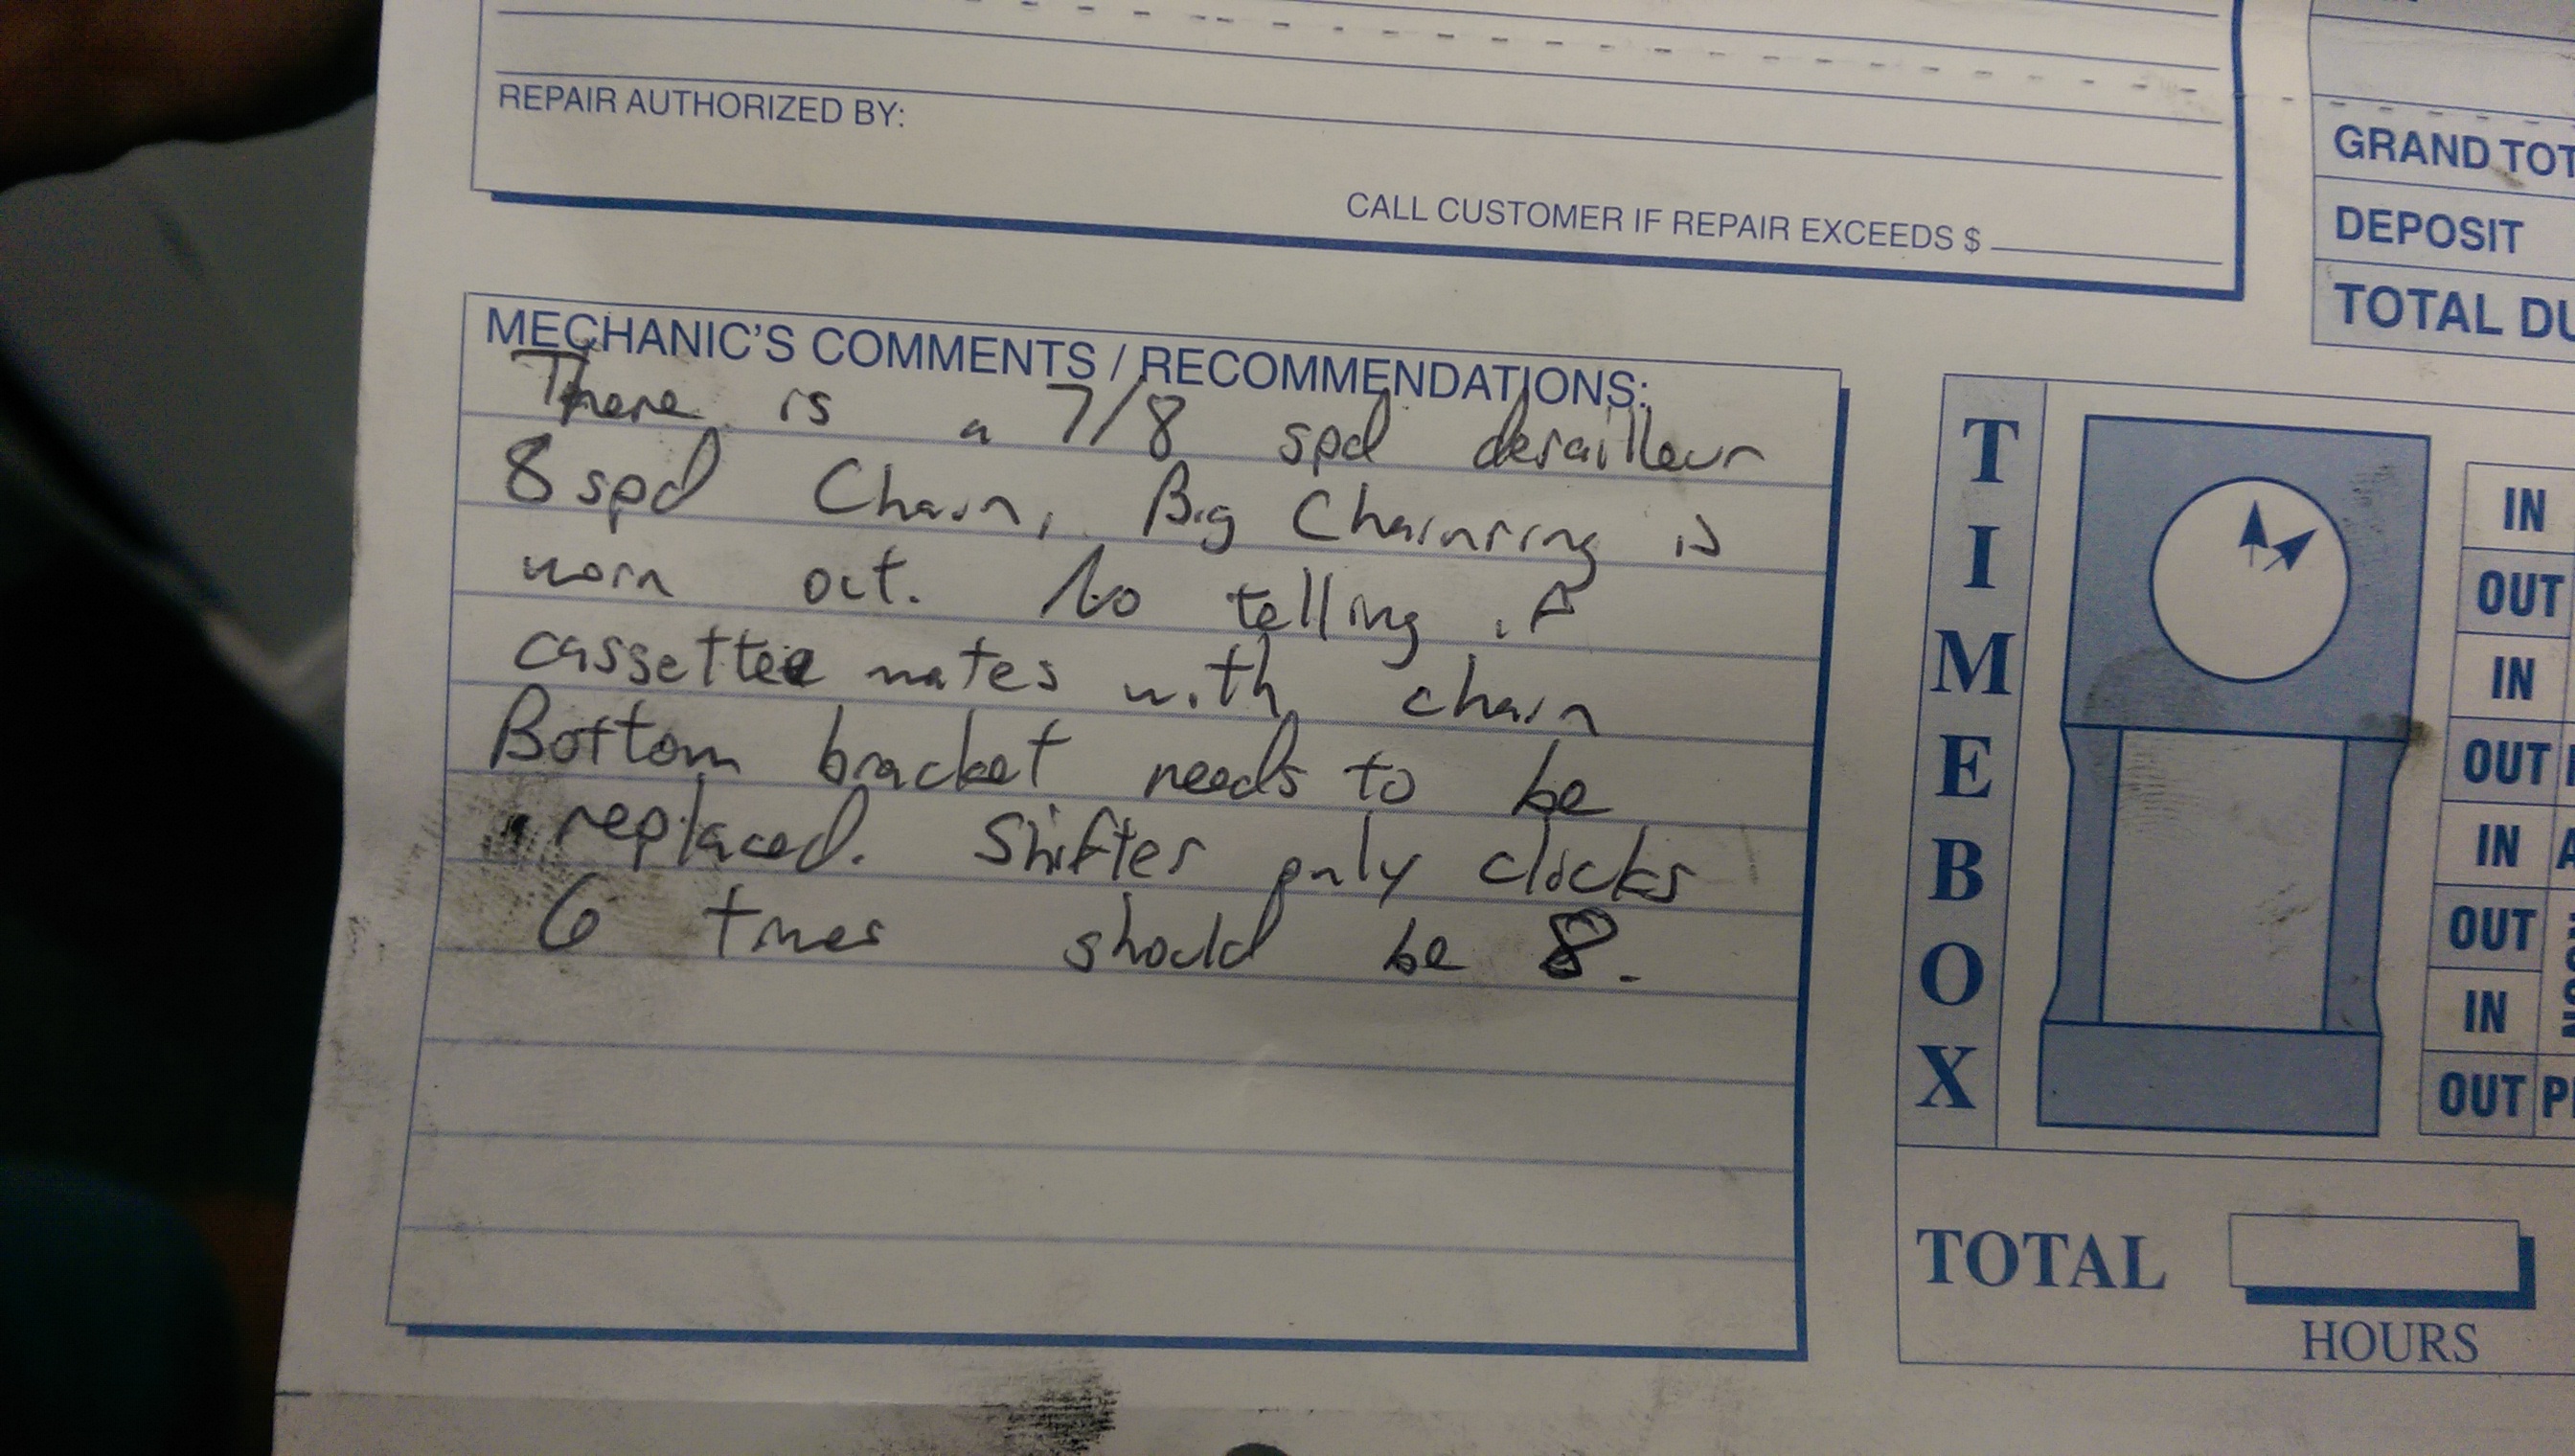 REPAIR AUTHORIZED BY:
CALL CUSTOMER IF REPAIR EXCEEDS $
GRAND TOT
DEPOSIT
TOTAL DU
MECHANIC'S COMMENTS / RECOMMENDATIONS:
There is a 7/8 spd derailleur
8 spd Chain, Big Chainring is
worn out. No telling if
cassettee mates with chain
Bottom bracket needs to be
replaced. Shifter only clicks
6 times should be 8.
TIME BOX
IN
OUT
IN
OUT
IN A
OUT
IN
OUT P
TOTAL
HOURS